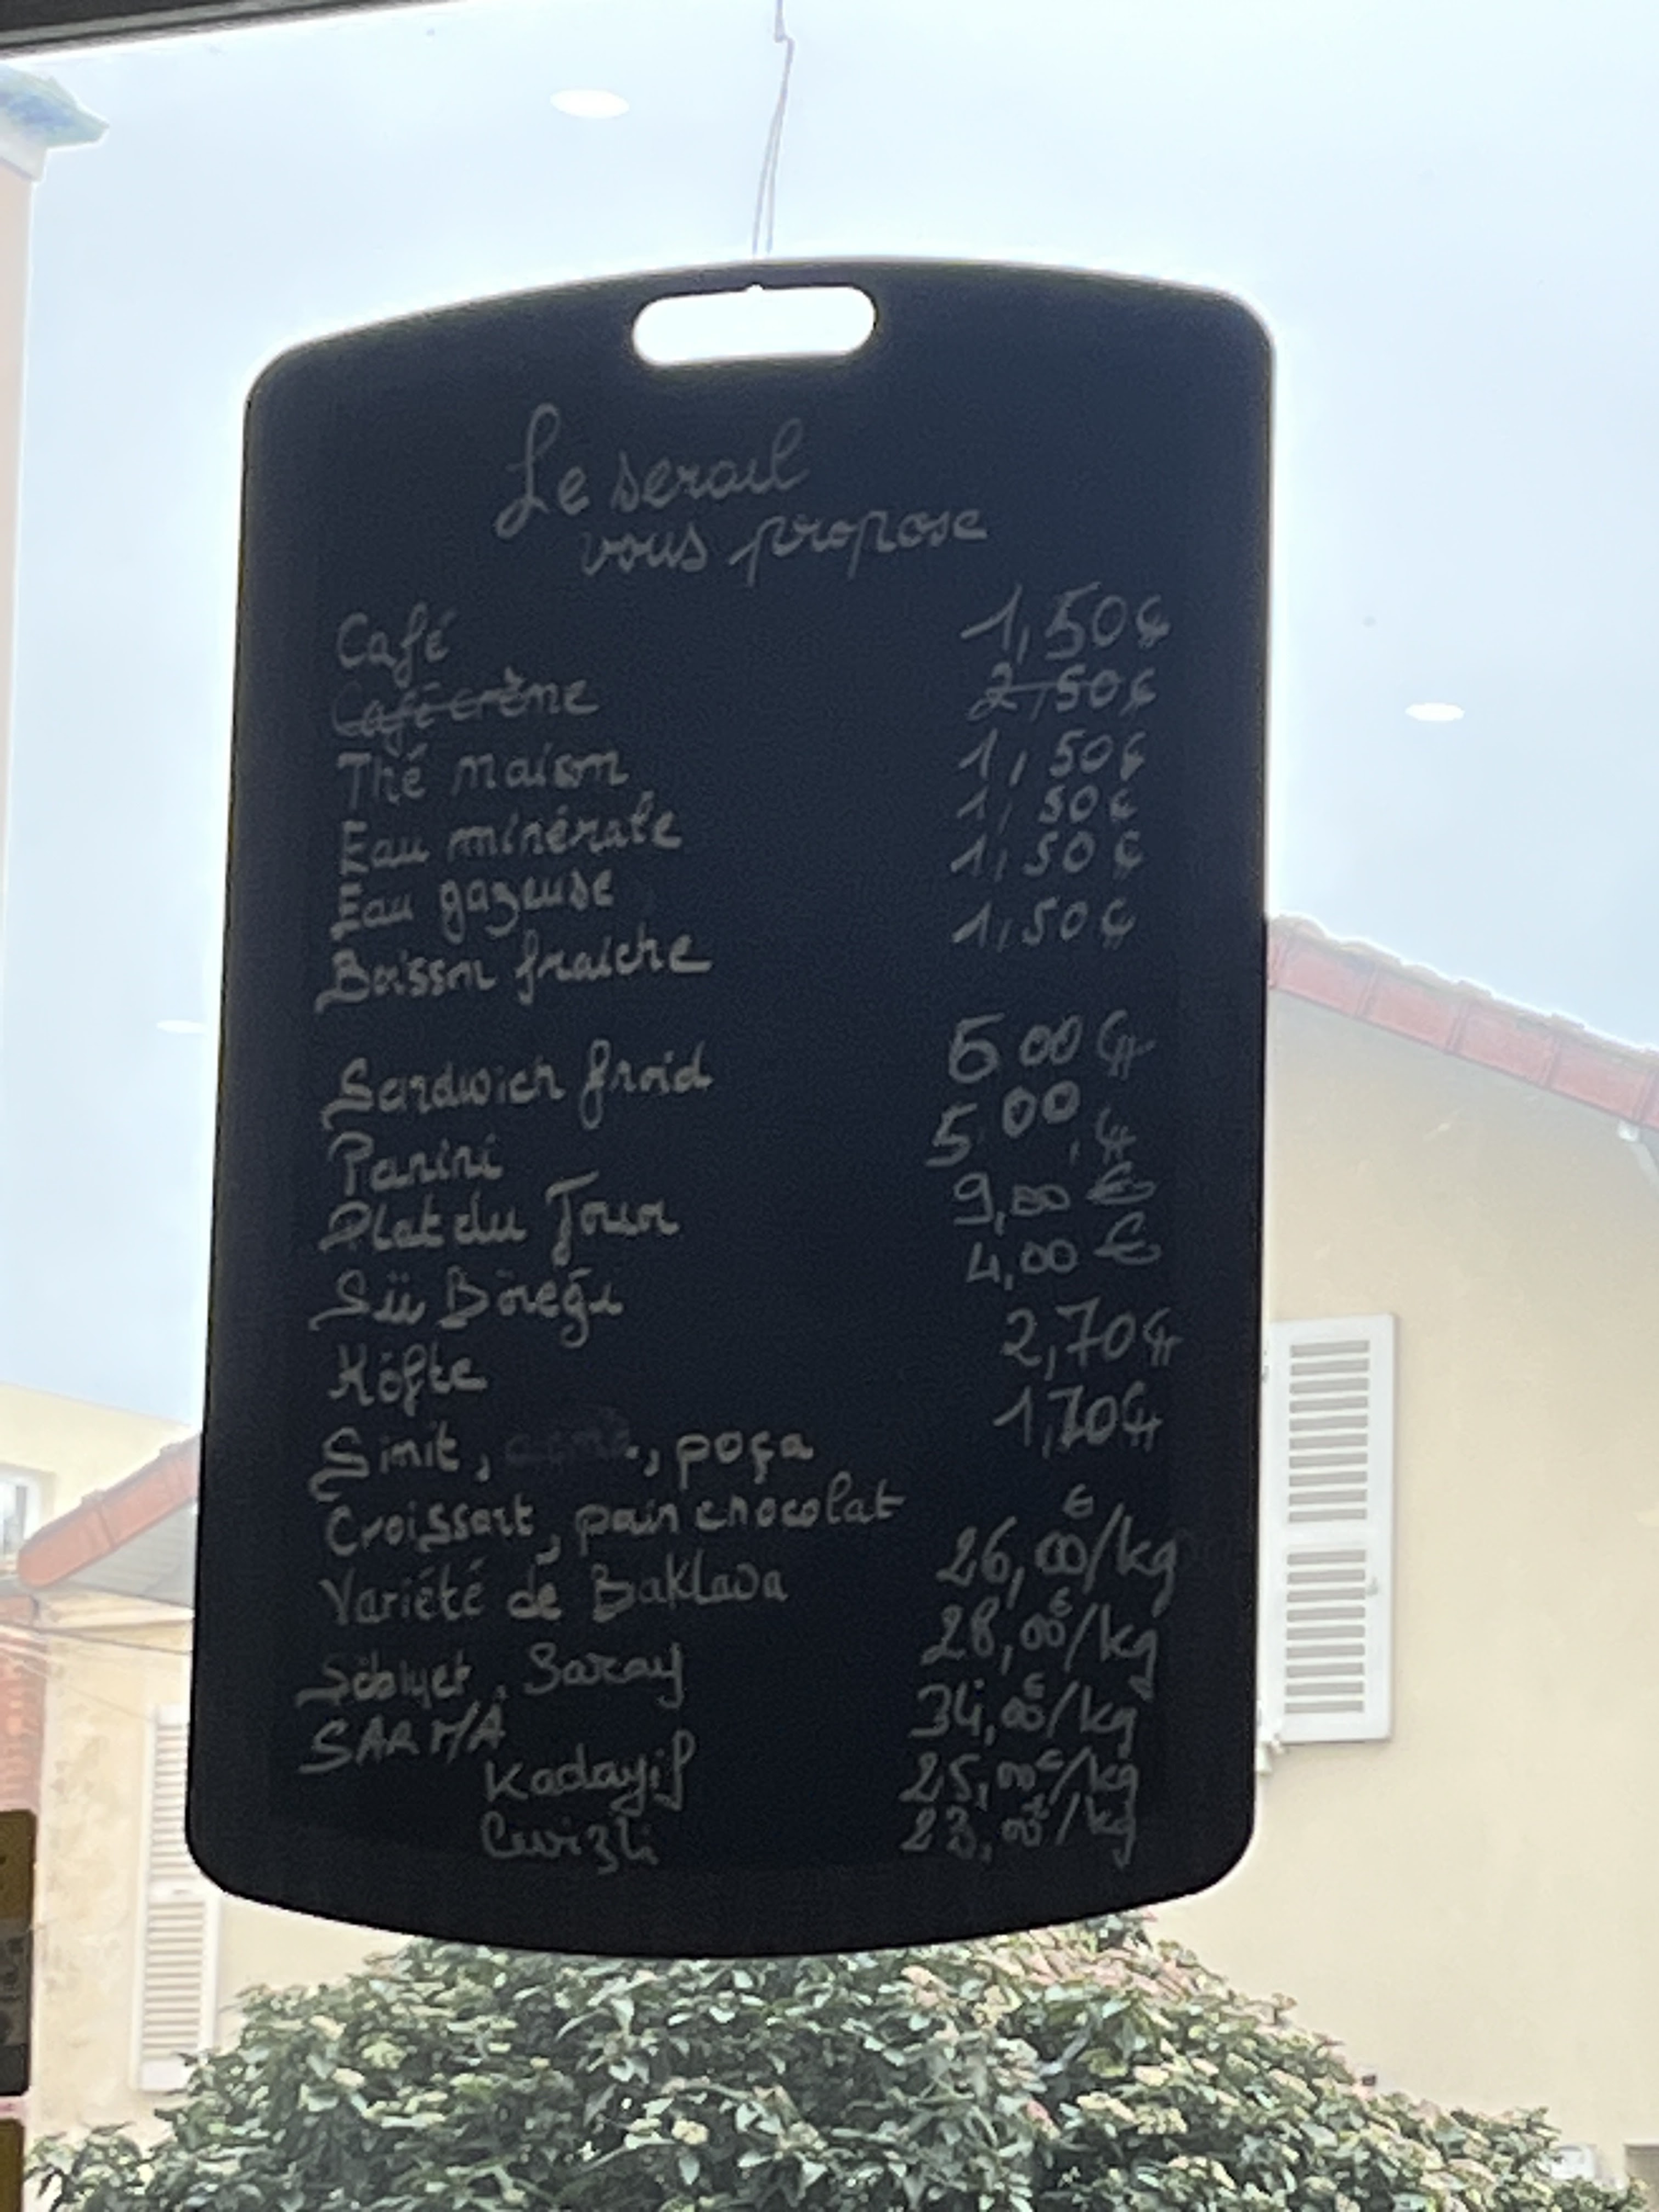 Le serail
vous propose
Café 1,50€
Café crème 2,50€
Thé maison 1,50€
Eau minérale 1,50€
Eau gazeuse 1,50€
Boisson fraiche 1,50€
Sandwich froid 00 €
Panini 5,00 €
Plat du Jour 9,00 €
Sü Böreği 4,00 €
Köfte 2,70€
Simit, , poça 1,70€
Croissant, pain chocolat
Variété de Baklava 26,00€/kg
Söbiyet, Saray 28,00€/kg
SARMA 34,00€/kg
Kadayif 25,00€/kg
Cevizli 23,00€/kg